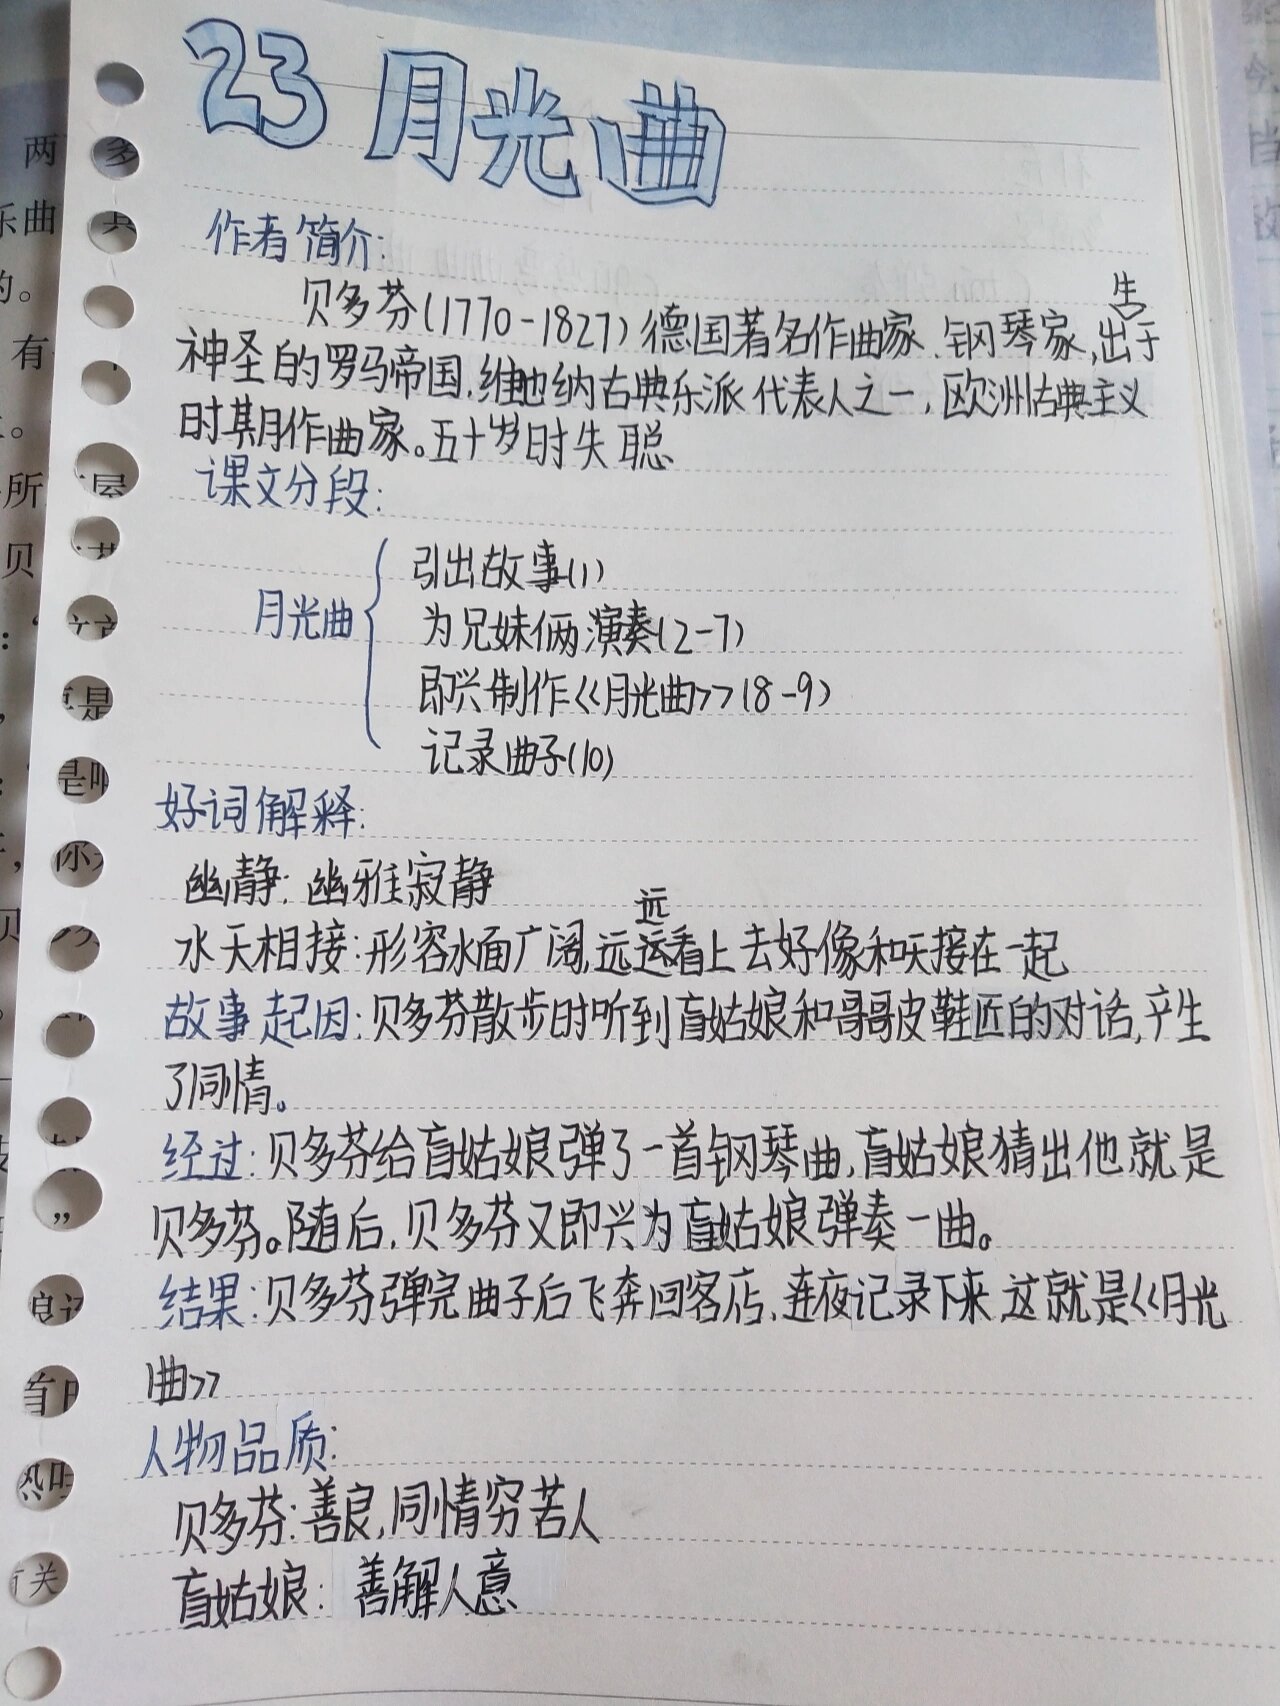 23 月光曲
作者简介:
贝多芬(1770-1827)德国著名作曲家、钢琴家,出生于
神圣的罗马帝国,维也纳古典乐派代表人之一,欧洲古典主义
时期作曲家。五十岁时失聪
课文分段:
月光曲
引出故事(1)
为兄妹俩演奏(2-7)
即兴制作<<月光曲>>(8-9)
记录曲子(10)
好词解释:
幽静: 幽雅寂静
水天相接:形容水面广阔,远远看上去好像和天接在一起
故事起因:贝多芬散步时听到盲姑娘和哥哥皮鞋匠的对话,产生
了同情。
经过:贝多芬给盲姑娘弹了一首钢琴曲,盲姑娘猜出他就是
贝多芬。随后,贝多芬又即兴为盲姑娘弹奏一曲。
结果:贝多芬弹完曲子后飞奔回客店,连夜记录下来,这就是<<月光
曲>>
人物品质:
贝多芬:善良,同情穷苦人
盲姑娘: 善解人意